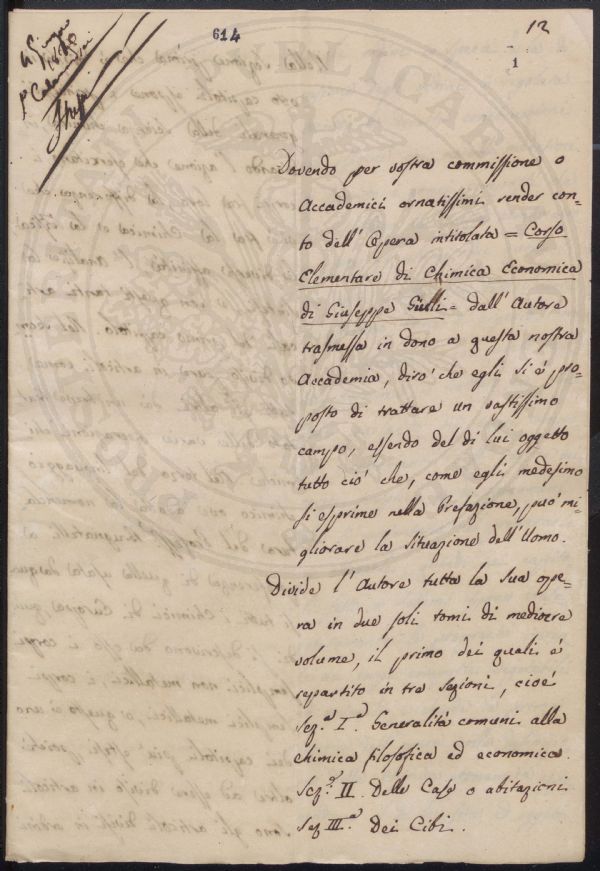 614
12
1
Dovendo per vostra commissione o
Accademici ornatissimi render con-
to dell'Opera intitolata = Corso
Elementare di Chimica Economica
di Giuseppe Giulli = dall'Autore
trasmessa in dono a questa nostra
Accademia, dirò che egli si è pro-
posto di trattare un vastissimo
campo, essendo del di lui oggetto
tutto ciò che, come egli medesimo
si esprime nella Prefazione, può mi-
gliorare la situazione dell'Uomo.
Divide l'Autore tutta la sua ope-
ra in due soli tomi di mediocre
volume, il primo dei quali è
repartito in tre Sezioni, cioè
Sez.ª I.ª Generalità comuni alla
chimica filosofica ed economica.
Sez.ª II. Delle Case o abitazioni
Sez III.ª Dei Cibi.